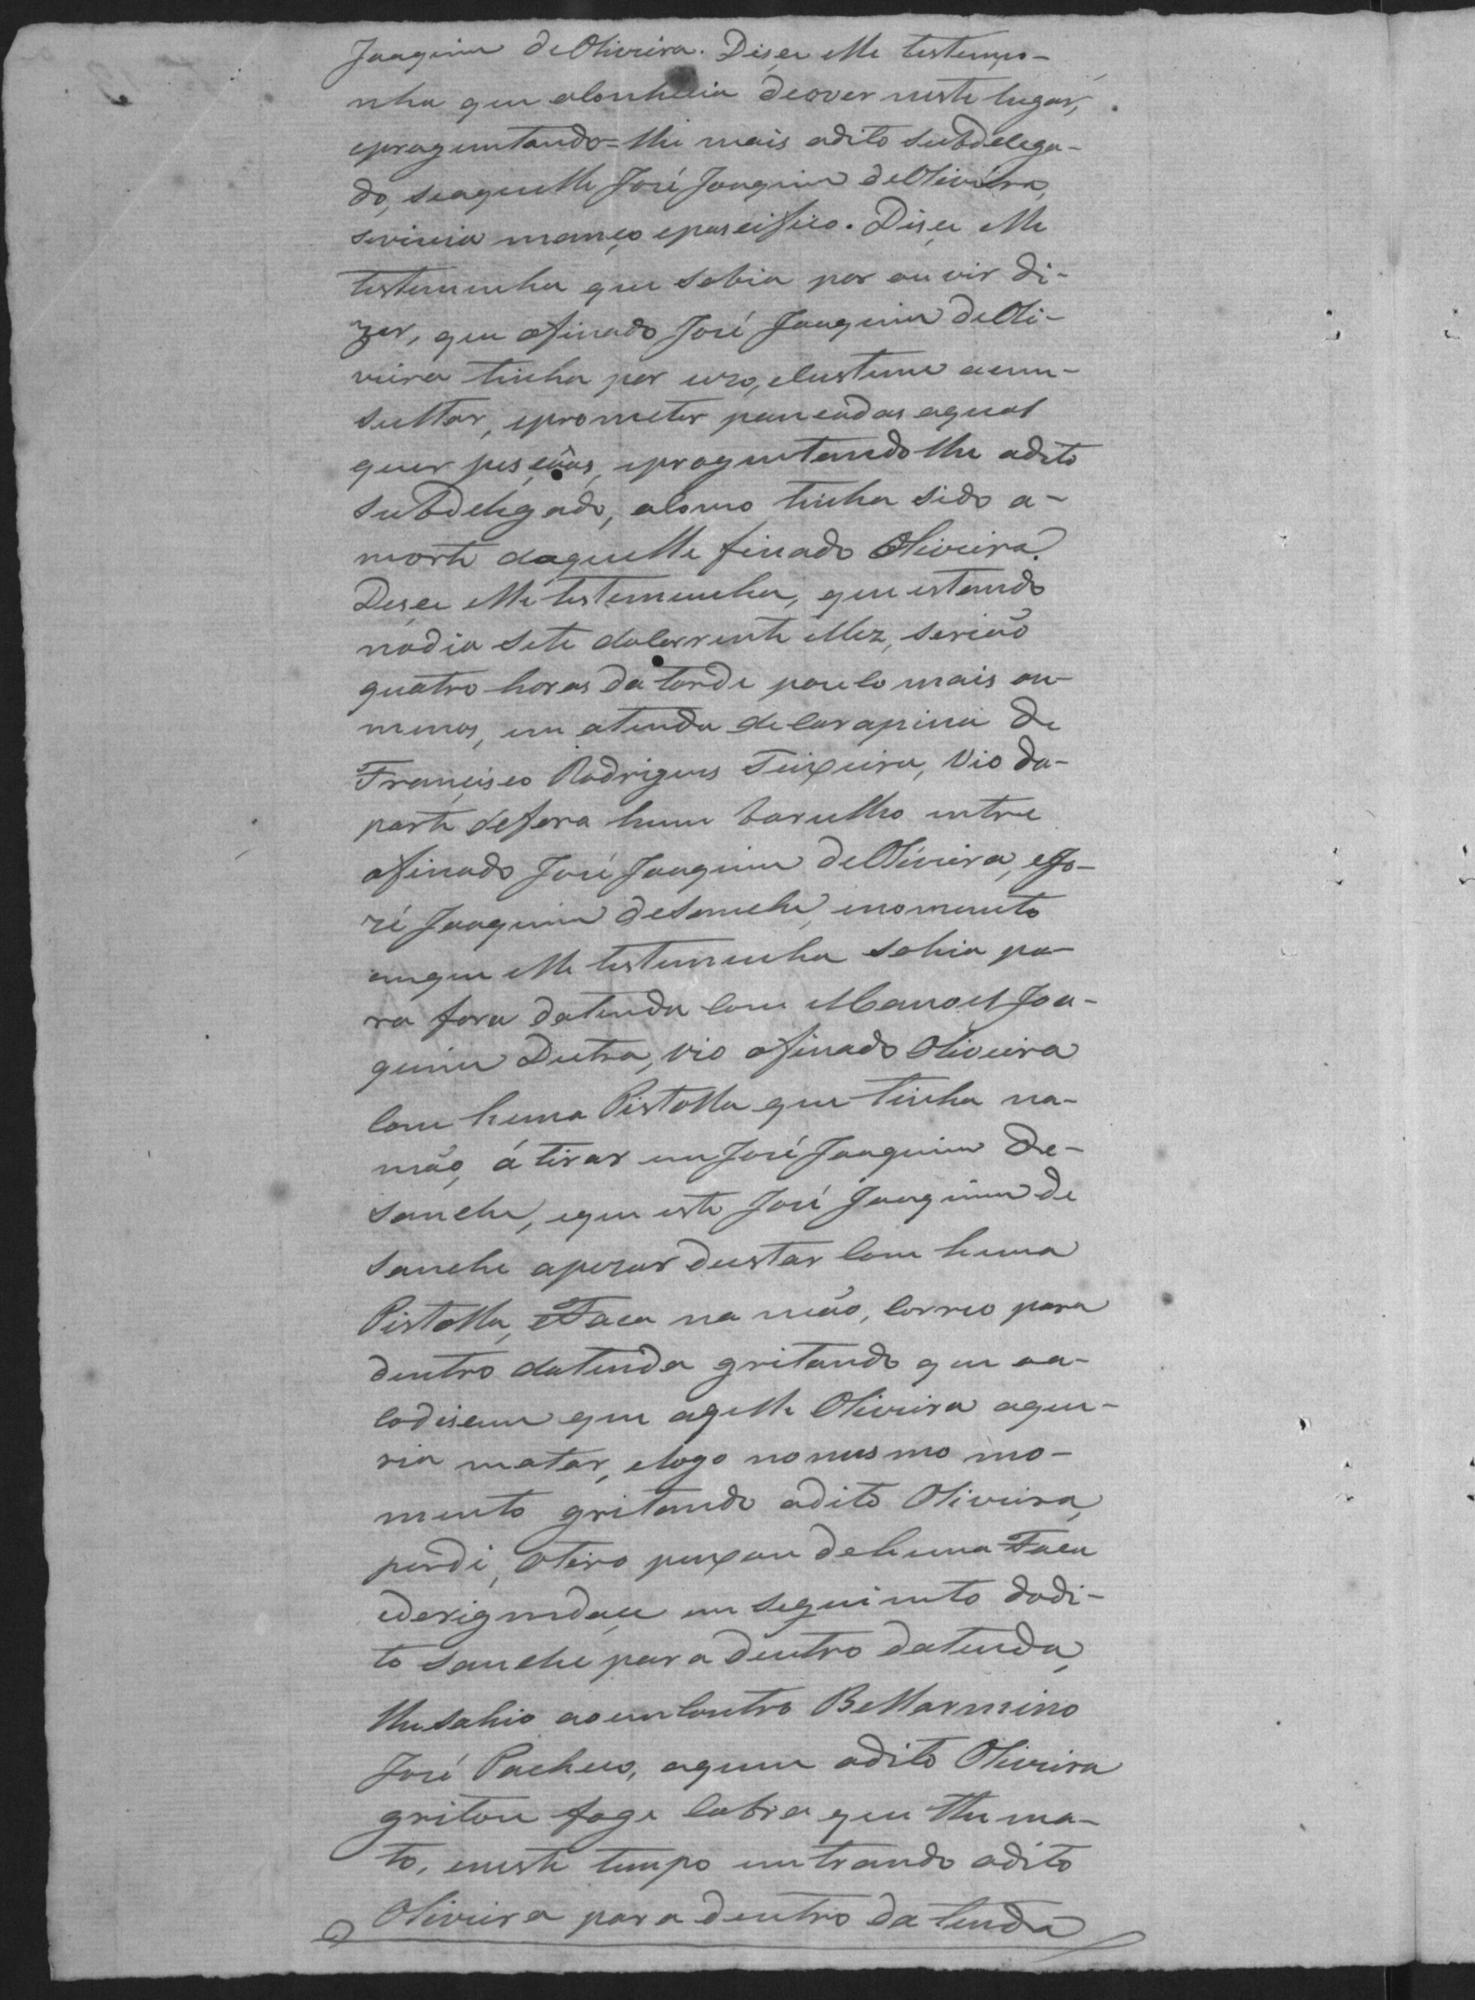 Joaquim de Oliveira. Dise elle testemo-
nha que alonhecia deover neste lugar,
epraguntando=lhe mais odito subdelega-
do, seaquelle José Joaquim deOliveira,
sivivia manço epascifico. Dise elle
testemunha que sabia por ouvir di-
zer, que ofinado José Joaquim deOli-
veira tinha por uzo, elustume aem-
sultar, eprometer pancadas aqual
quer pesçôas, epraguntandolhe odito
subdelegado, alomo tinha sido a-
morte daquelle finado Oliveira?
Dese elle testemunha, que estando
nodia sete dolorrente Mez, serião
quatro horas da tarde poulo mais ou-
menos, em atenda delarapina de
Francisco Rodrigues Teixeira, Vio da-
parte defora hum barulho entre
ofinado José Joaquim deOliveira, eJo-
zé Joaquim deSanche, enomento
emque elle testemunha sahia pa-
ra fora datenda lom Manoel Joa-
quim Dutra, vio ofinado Oliveira
lom huma Pistolla que tinha na-
mão, á tirar em José Joaquim de-
sanche, eque este José Joaquim de
Sanche apezar destar lom huma
Pistolla, eFaca na mão, lorreo para
dentro datenda gritando que oa-
lodisem que aqelle Oliveira oque-
ria matar, elogo nomesmo mo-
mento gritando odito Oliveira,
perdi, otiro puxou dehuma Faca
ederigindoçe em seguimto dodi-
to Sanche para dentro datenda,
lhesahio aoemlontro Bellarmino
José Pacheco, aquem odito Oliveira
gritou foge labra que the ma-
to, eneste tempo emtrando odito
Oliveira para dentro da tenda